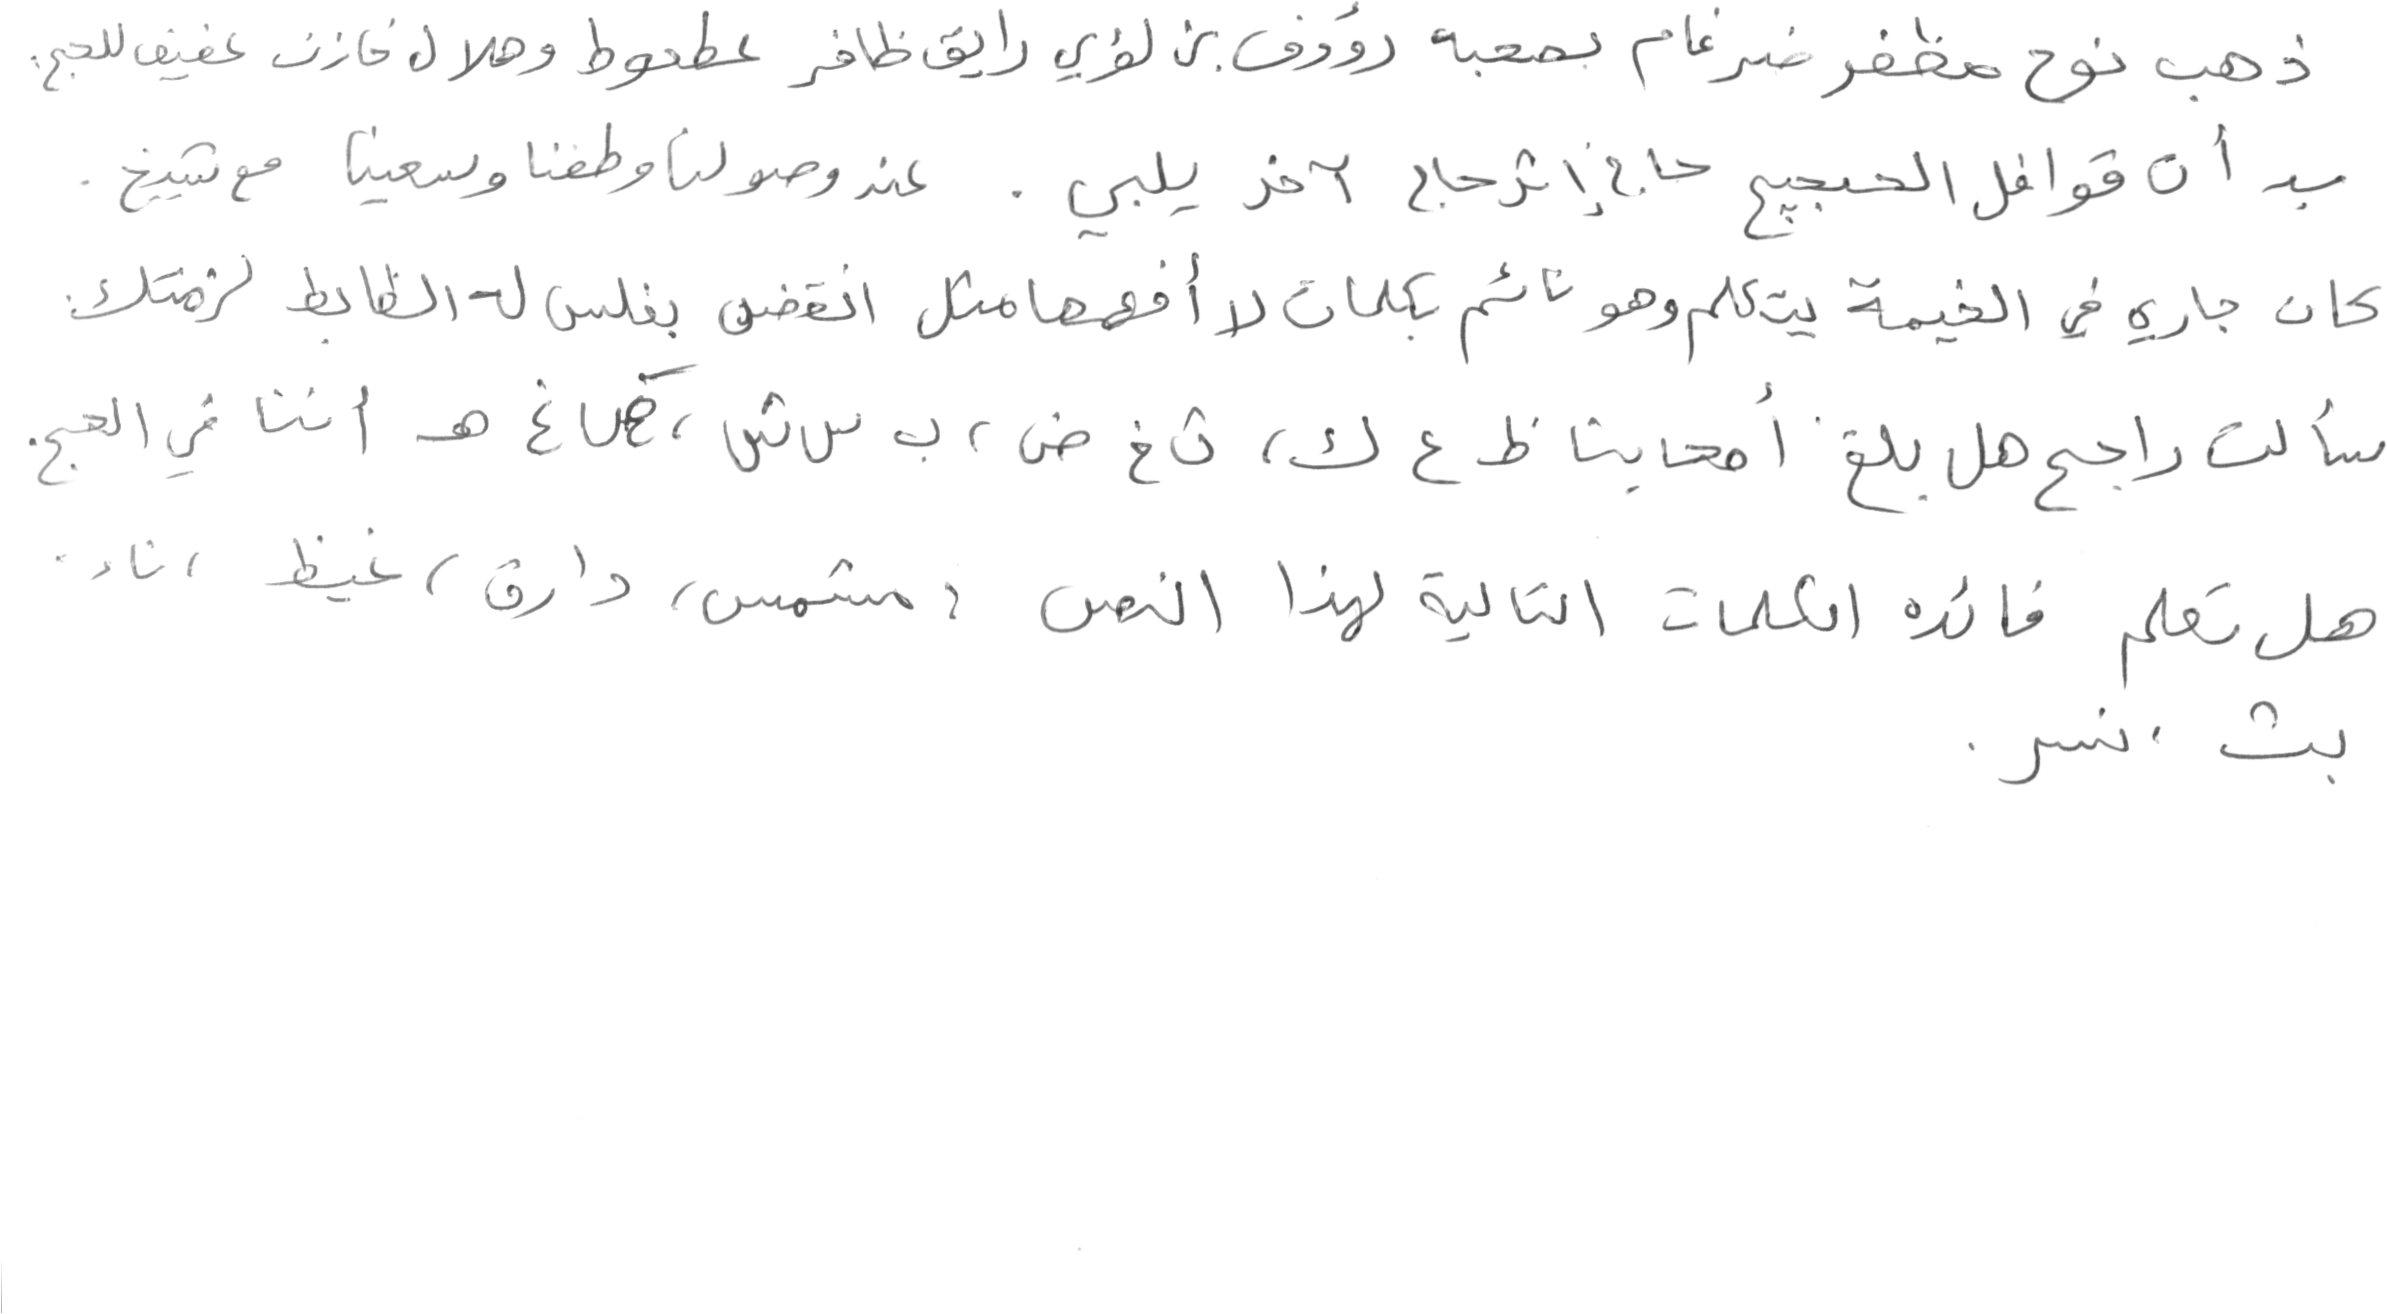 ذهب نوح مظفر ضرغام بصحبه رؤوف بن لؤي رايق ظافر عطعوط وهلال خازن عفيف للحج.
بيد أن قوافل الحجيج حاج إثر حاج آخر يلبي . عند وصولنا وطفنا وسعينا مع شيخ .
كان جاري في الخيمة يتكلم وهو نائم بكلمات لا أفهمها مثل انقض بفلس له الظابط لزمتك.
سألت راجح هل بلغ أمحايشا ظ ع ك، ث غ ض ، ب س ش ، غ هـ أننا في الحج.
هل تعلم فائده الكلمات التالية لهذا النص : مشمس، دارق، غيظ ، ناء .
بث ، نسر .